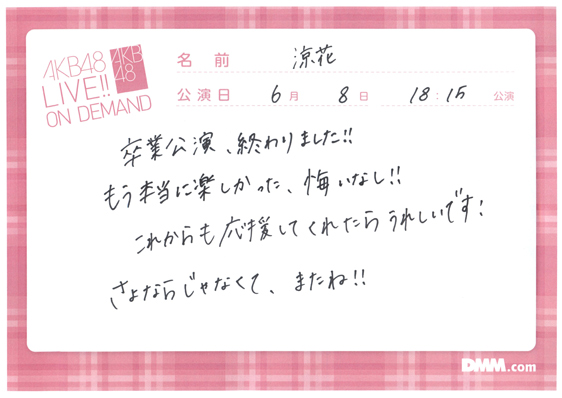 AKB48
LIVE!!
ON DEMAND
AKB
48
名前 涼花
公演日 6月 8日 18:15 公演
卒業公演、終わりました!!
もう本当に楽しかった、悔いなし!!
これからも応援してくれたらうれしいです!
さよならじゃなくて、またね!!
DMM.com